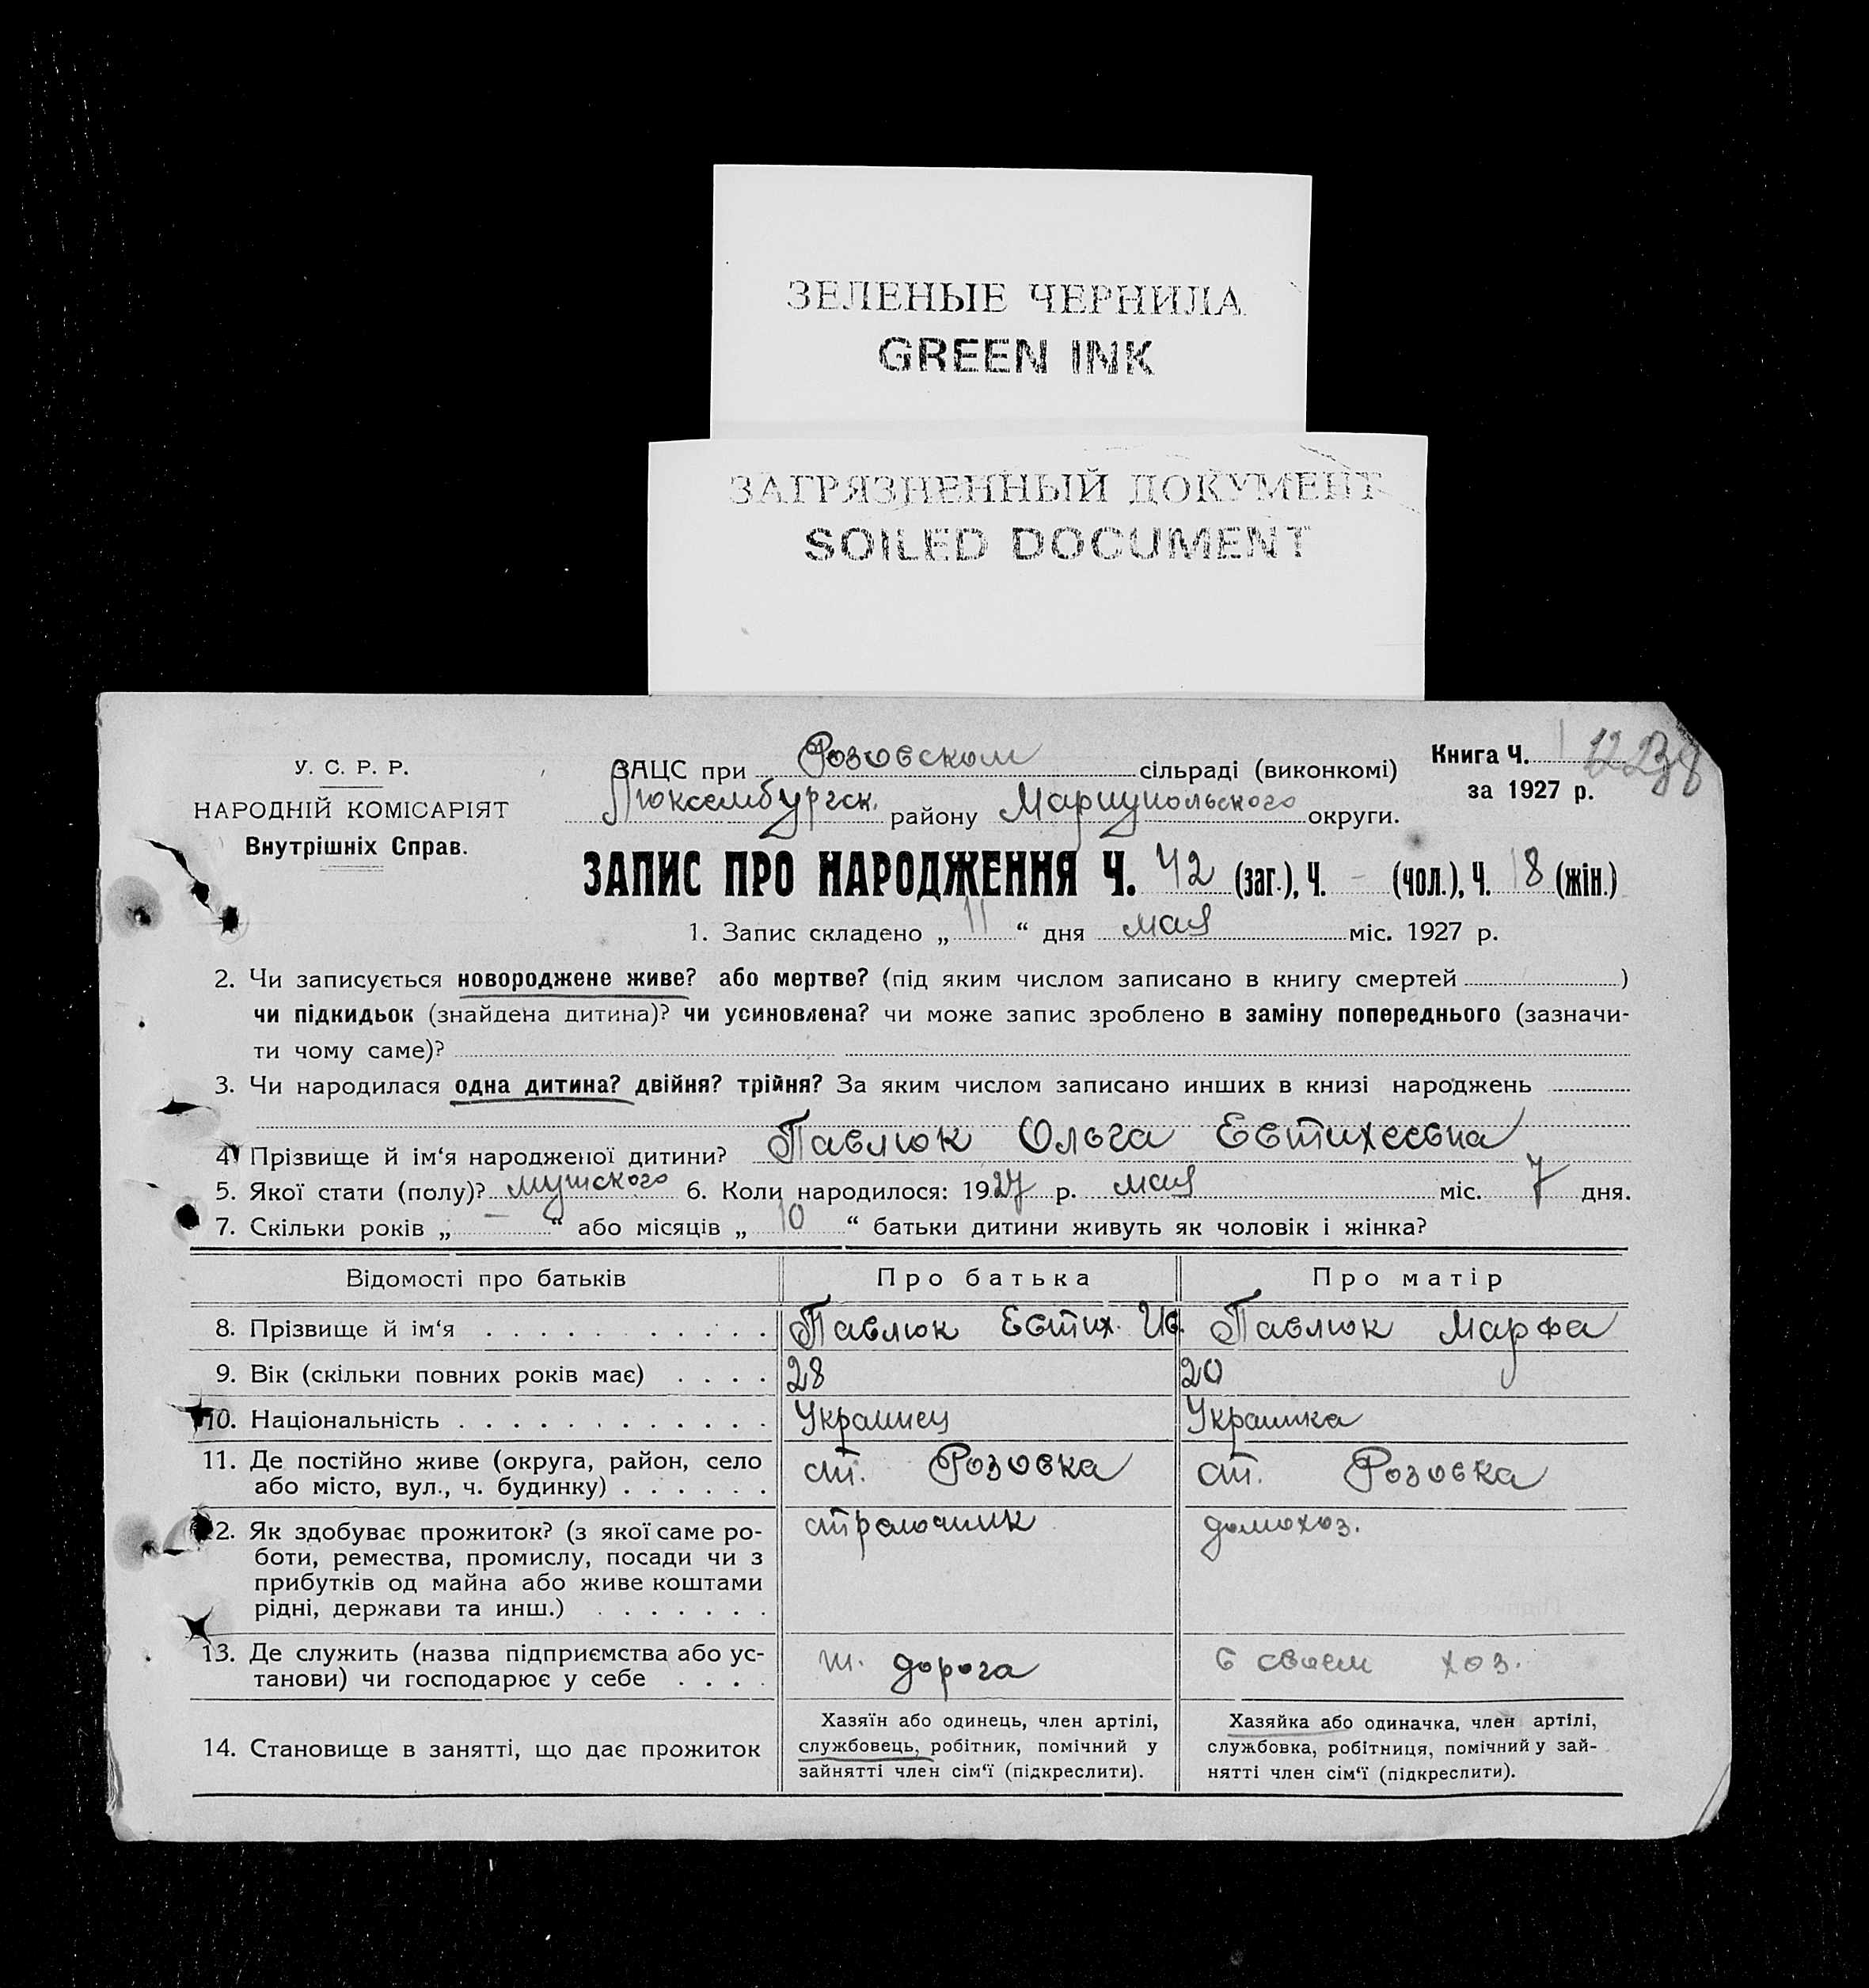 ЗЕЛЕНЫЕ ЧЕРНИЛА
GREEN INK
ЗАГРЯЗНЕННЫЙ ДОКУМЕНТ
SOILED DOCUMENT
У. С. Р. Р.
НАРОДНІЙ КОМІСАРІЯТ
Внутрішніх Справ.
ЗАЦС при Розовском сільраді (виконкомі)
Люксембургск. району Мариупольского округи.
Книга Ч. 1
за 1927 р.
ЗАПИС ПРО НАРОДЖЕННЯ Ч. 42 (заг.), Ч. - (чол.), Ч. 18 (жін.)
1. Запис складено „ 11 “ дня мая міс. 1927 р.
2. Чи записується новороджене живе? або мертве? (під яким числом записано в книгу смертей )
чи підкидьок (знайдена дитина)? чи усиновлена? чи може запис зроблено в заміну попереднього (зазначи-
ти чому саме)?
3. Чи народилася одна дитина? двійня? трійня? За яким числом записано инших в книзі народжень
4. Прізвище й ім‘я народженої дитини? Павлюк Ольга Евтихеевна
5. Якої стати (полу)? мужского 6. Коли народилося: 1927 р. мая міс. 7 дня.
7. Скільки років „ — “ або місяців „ 10 “ батьки дитини живуть як чоловік і жінка?
Відомості про батьків Про батька Про матір
8. Прізвище й ім‘я Павлюк Евтих. Ив. Павлюк Марфа
9. Вік (скільки повних років має) 28 20
10. Національність Украинец Украинка
11. Де постійно живе (округа, район, село
або місто, вул., ч. будинку)
ст. Розовка ст. Розовка
12. Як здобуває прожиток? (з якої саме ро-
боти, ремества, промислу, посади чи з
прибутків од майна або живе коштами
рідні, держави та инш.)
стрелочник домохоз.
13. Де служить (назва підприємства або ус-
танови) чи господарює у себе
ж. дорога в своем хоз.
14. Становище в занятті, що дає прожиток
Хазяїн або одинець, член артілі,
службовець, робітник, помічний у
зайнятті член сім‘ї (підкреслити).
Хазяйка або одиначка, член артілі,
службовка, робітниця, помічний у зай-
нятті член сім‘ї (підкреслити).